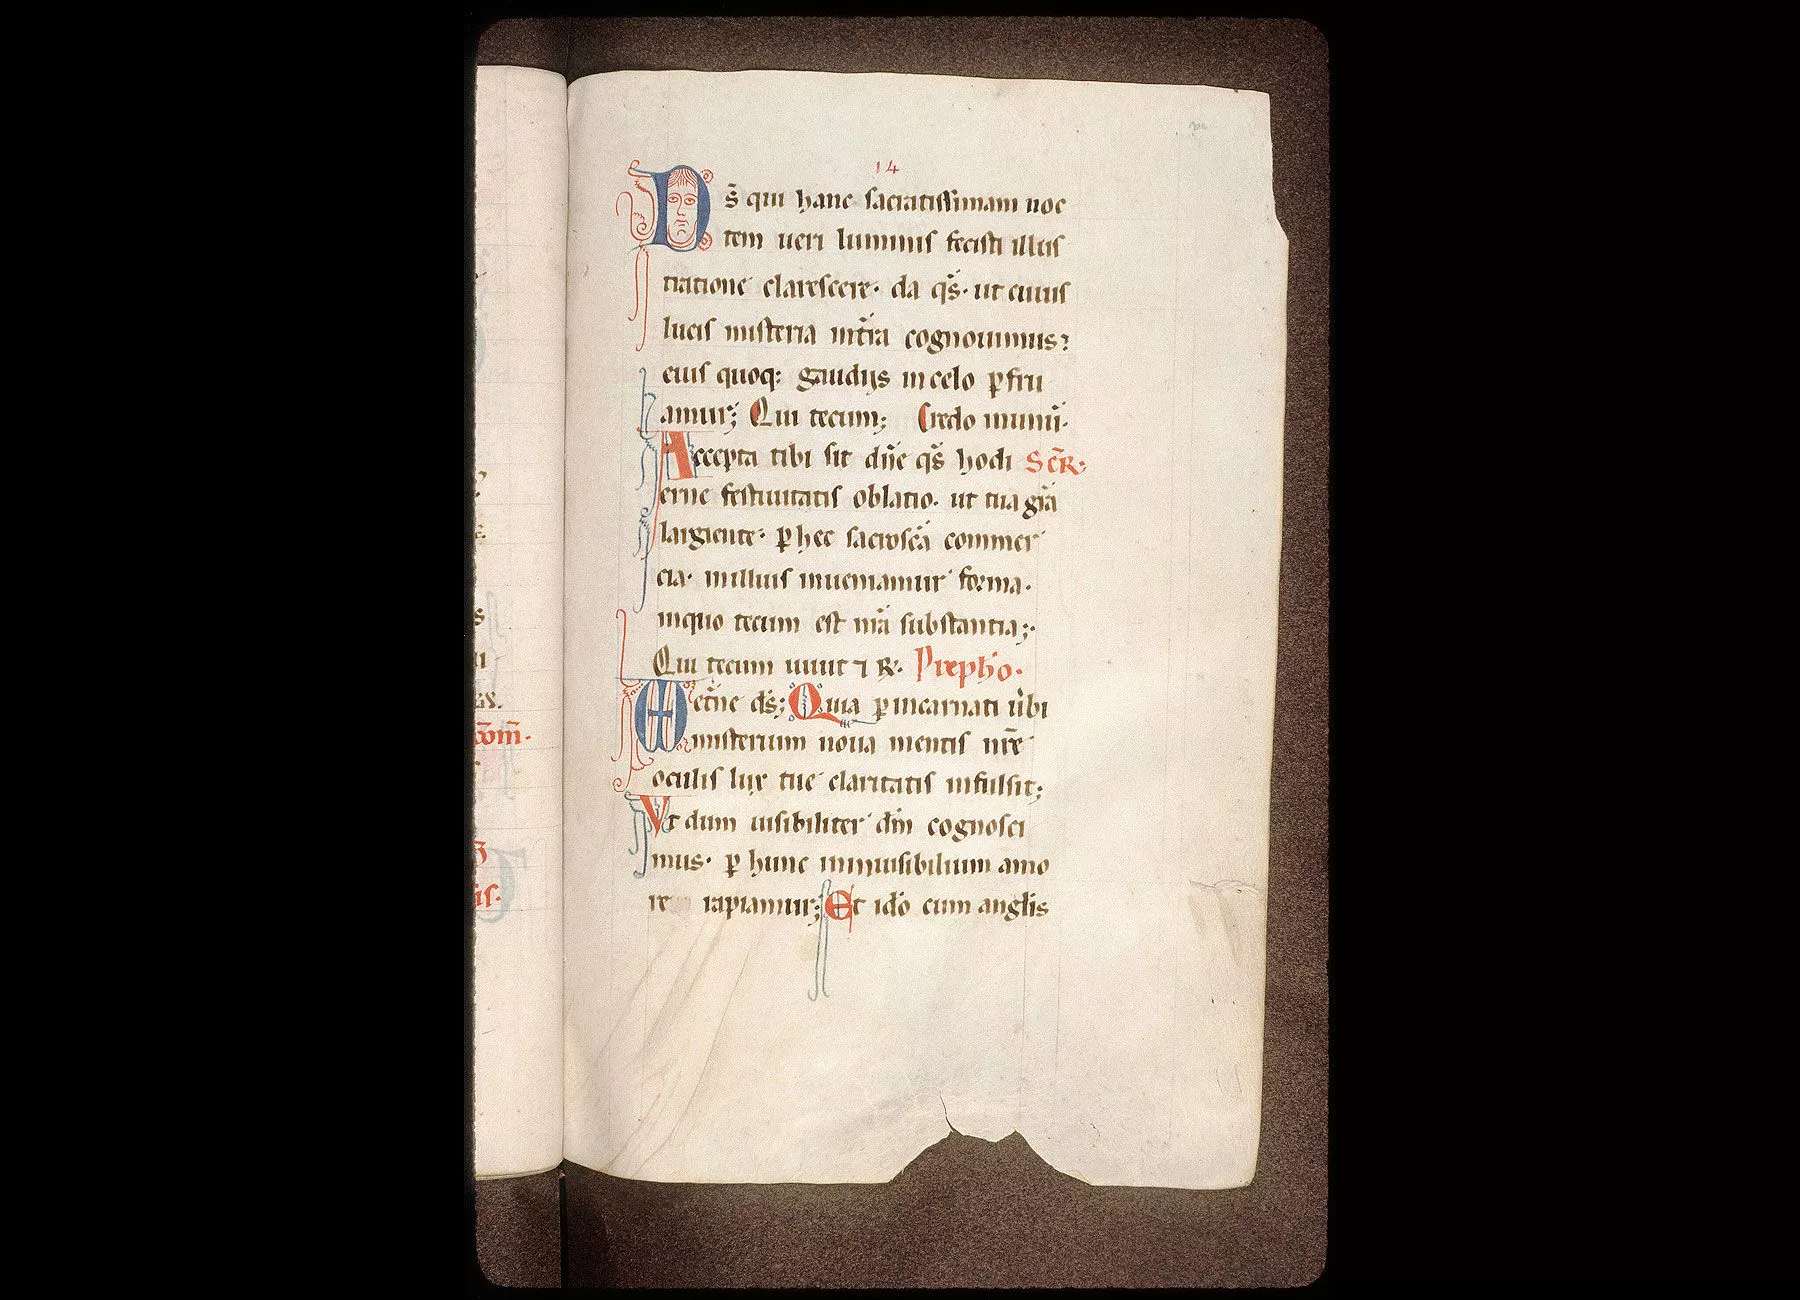 14
Ds̄ qui hanc sacratissimam noc
tem ueri luminis fecisti illus
tratione clarescere· da qs̄· ut cuius
lucis misteria in tr̄ra cognouimus:
eius quoq: gaudijs in celo ꝑfru
amur; Qui tecum; Credo in unū·
Accepta tibi sit dn̄e qs̄ hodi Scr̄·
erne festiuitatis oblatio· ut tua gr̄a
largiente· ꝑ hec sacrosc̄a commer
cia· in illius inueniamur forma·
inquo tecum est nr̄a substantia;·
Qui tecum uiuit ⁊ R̄· Prephō·
Et̄ne ds̄; Quia ꝑ incarnati ūbi
misterium noua mentis nr̄e
oculis lux tue claritatis infulsit;
Vt dum uisibiliter dm̄ cognosci
mus· ꝑ hunc in inuisibilium amo
re rapiamur; Et idō cum anglis
cōm̄·